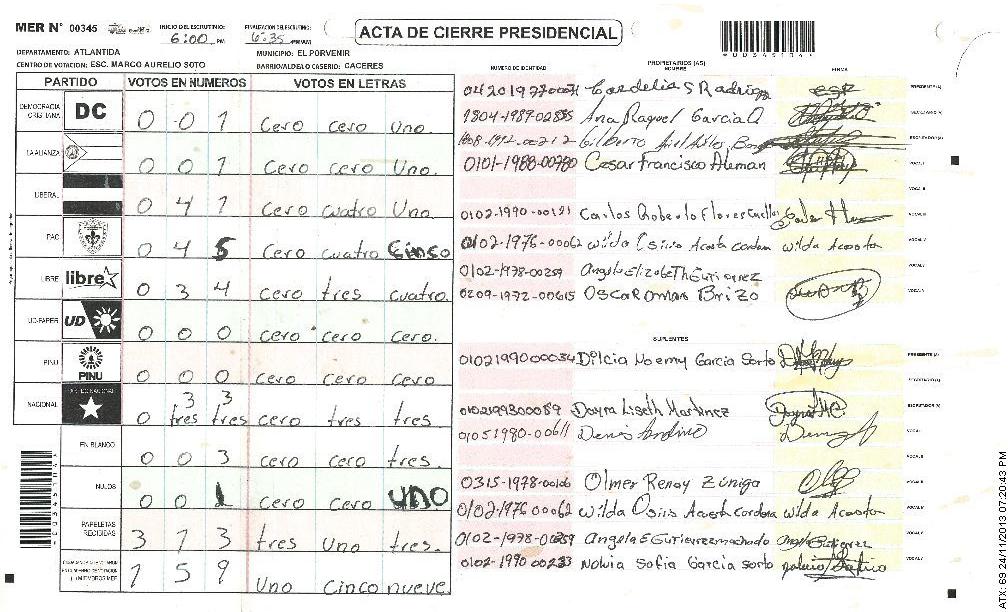 MER N° 00345
INICIO DEL ESCRUTINIO: 6:00 PM
FINALIZACION DEL ESCRUTINIO: 6:35 PM
ACTA DE CIERRE PRESIDENCIAL
DEPARTAMENTO: ATLANTIDA
MUNICIPIO: EL PORVENIR
CENTRO DE VOTACION: ESC. MARCO AURELIO SOTO
BARRIO/ALDEA O CASERIO: CACERES
PARTIDO VOTOS EN NUMEROS VOTOS EN LETRAS
DEMOCRACIA CRISTIANA DC 0 0 1 Cero Cero Uno.
LA ALIANZA 0 0 1 Cero Cero Uno.
LIBERAL 0 4 1 Cero Cuatro Uno.
PAC 0 4 5 Cero Cuatro Cinco
LIBRE libre 0 3 4 Cero tres cuatro.
UD-FAPER UD 0 0 0 Cero Cero Cero.
PINU PINU 0 0 0 Cero Cero Cero
NACIONAL 3 3
0 tres tres cero tres tres.
EN BLANCO 0 0 3 cero cero tres.
NULOS 0 0 1 Cero Cero uno
PAPELETAS RECIBIDAS 3 1 3 tres Uno tres.
1 5 9 Uno Cinco nueve.
NUMERO DE IDENTIDAD
PROPIETARIOS (AS)
NOMBRE
FIRMA
Ana Raquel Garcia
0101-1988-00780 Cesar Francisco Aleman
0102-1990-00191 Carlos Roberto Flores
0102-1976-00062 Wilda Osiris Acosta Cordon Wilda Acosta
0102-1978-00259 Angela Elizabeth Gutierrez
0209-1972-00615 Oscar Oman Brizo
SUPLENTES
0102199000034 Dilcia Noemy Garcia Sorto
0102199300089 Dayra Liseth Martinez
01051980-00611 Denis Andino
0315-1978-00106 Olmer Renay Zúniga
0102-1976 00062 Wilda Osiris Acosta Cordona Wilda Acosta
0102-1978-00259 Angela E Gutierrez machado Angela Gutierrez
0102-1990 00233 Nolvia Sofia Garcia Sorto
ATX: 69 24/11/2013 07:20:43 PM